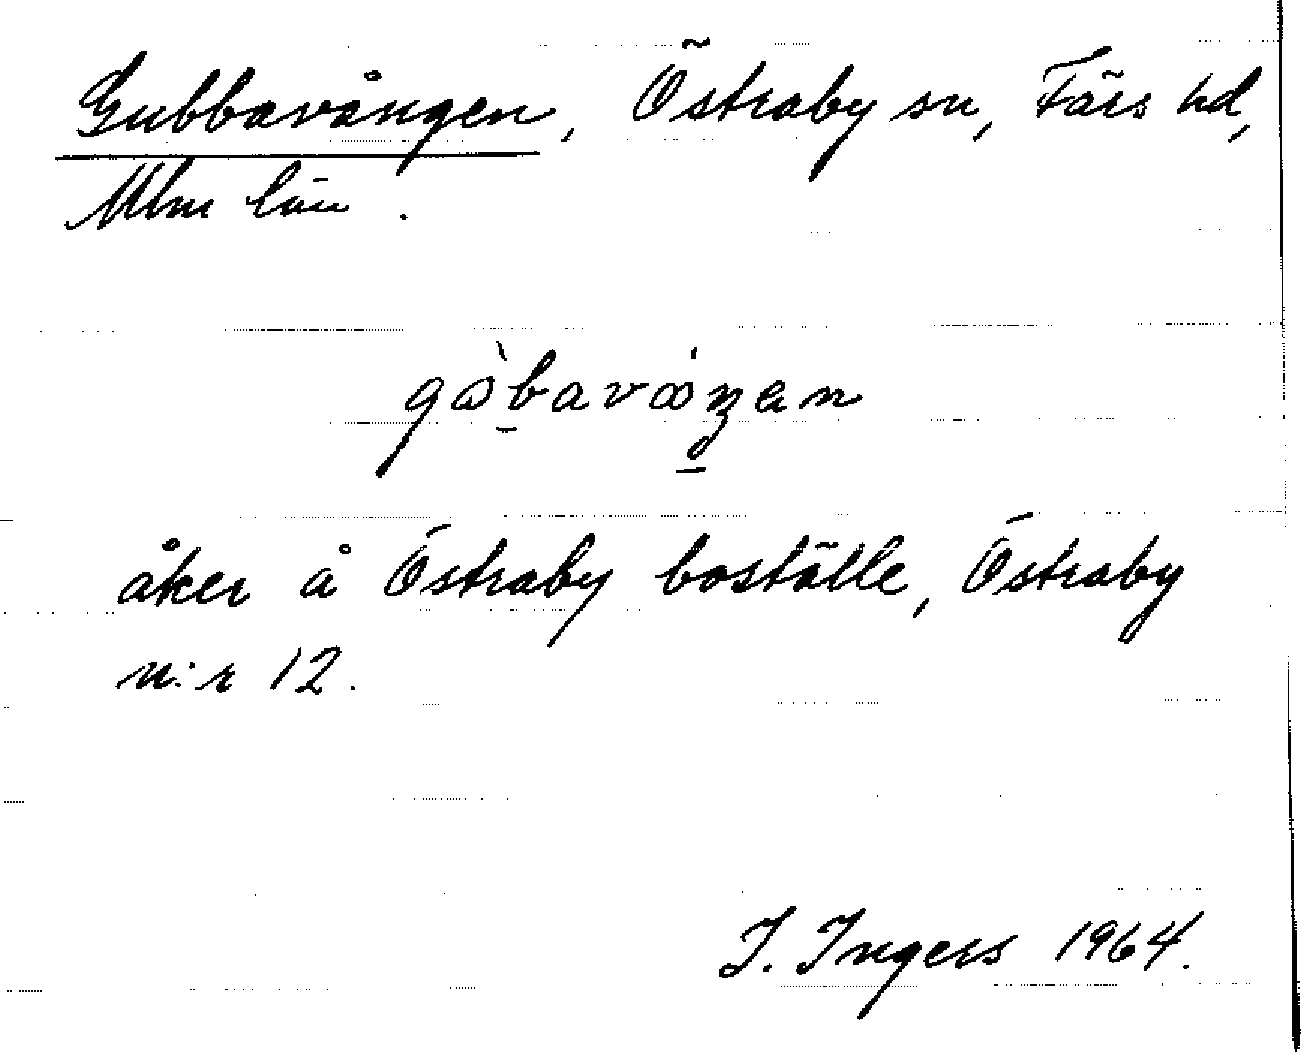 Gubbavången, Östraby sn, Färs hd,
Mlm län.
åker å Östraby boställe, Östraby
n:r 12.
I. Ingers 1964.